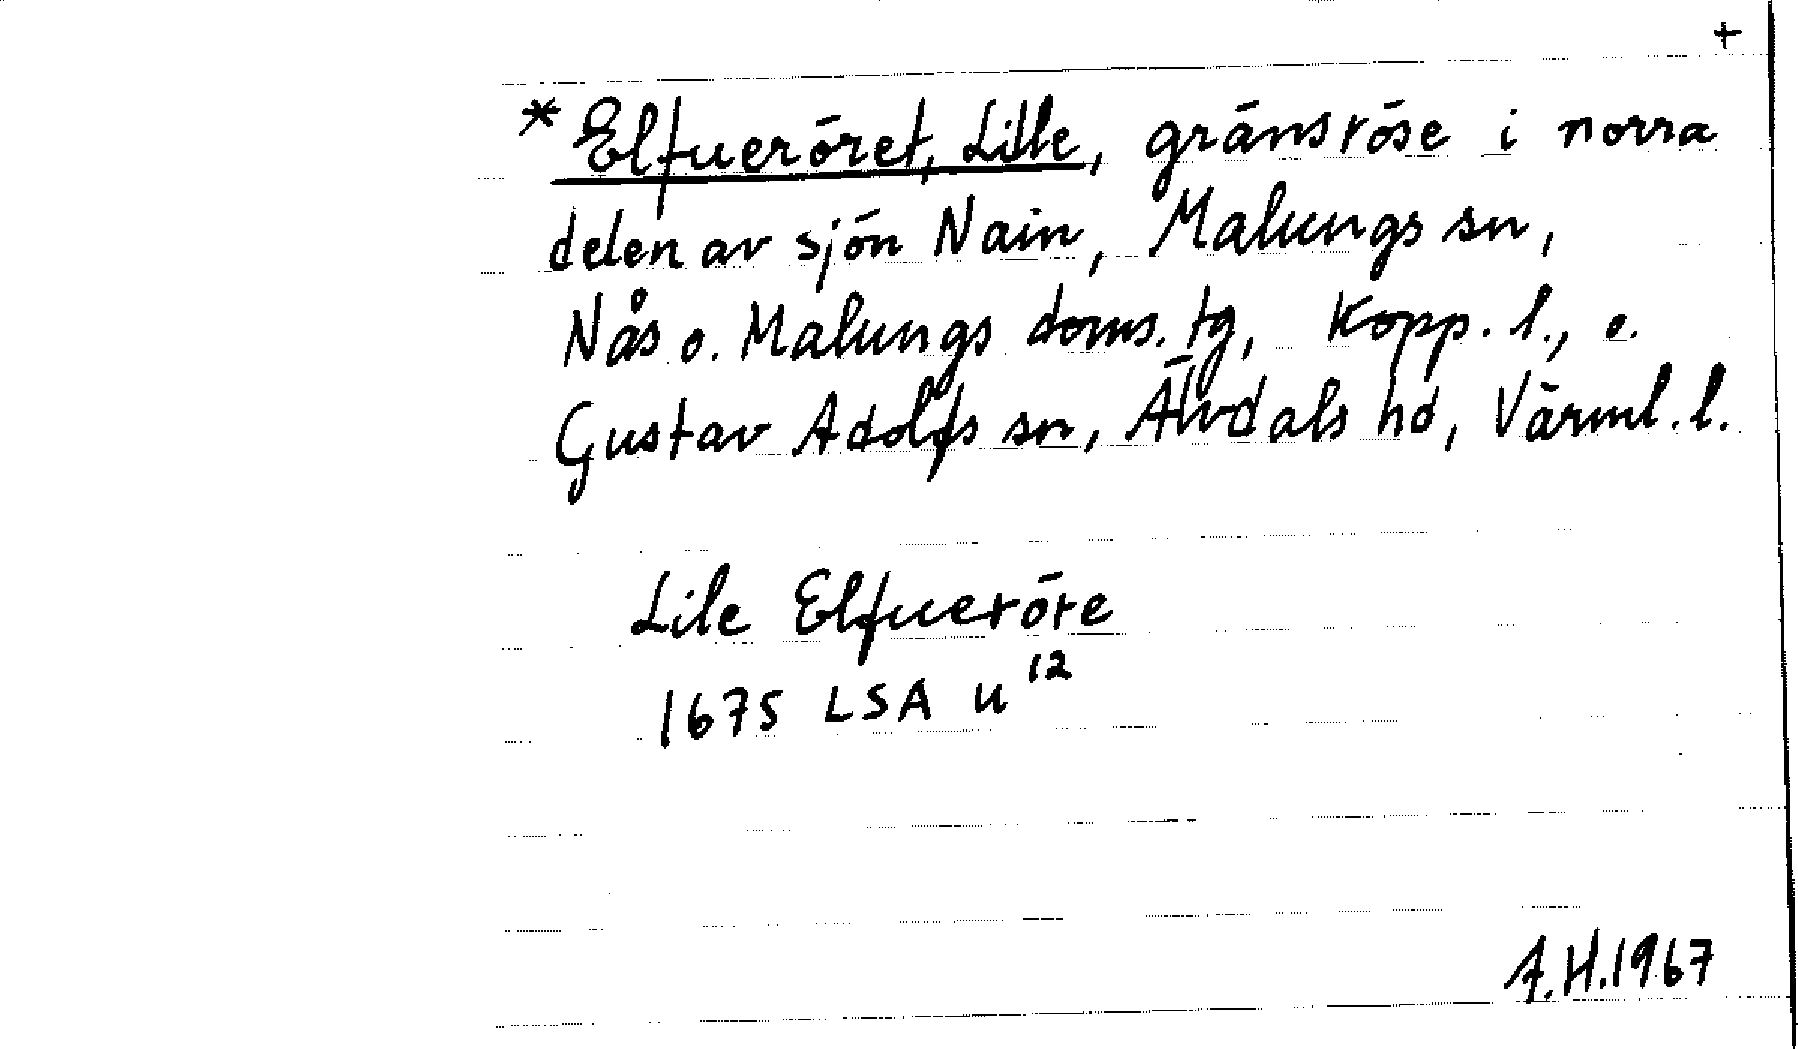 +
* Elfueröret, Lille, gränsröse i norra
delen av sjön Nain, Malungs sn,
Nås o. Malungs doms. tg, Kopp. l., o.
Gustav Adolfs sn, Älvdals hd, Värml. l.
Lile Elfueröre
1675 LSA u¹²
A.H. 1967